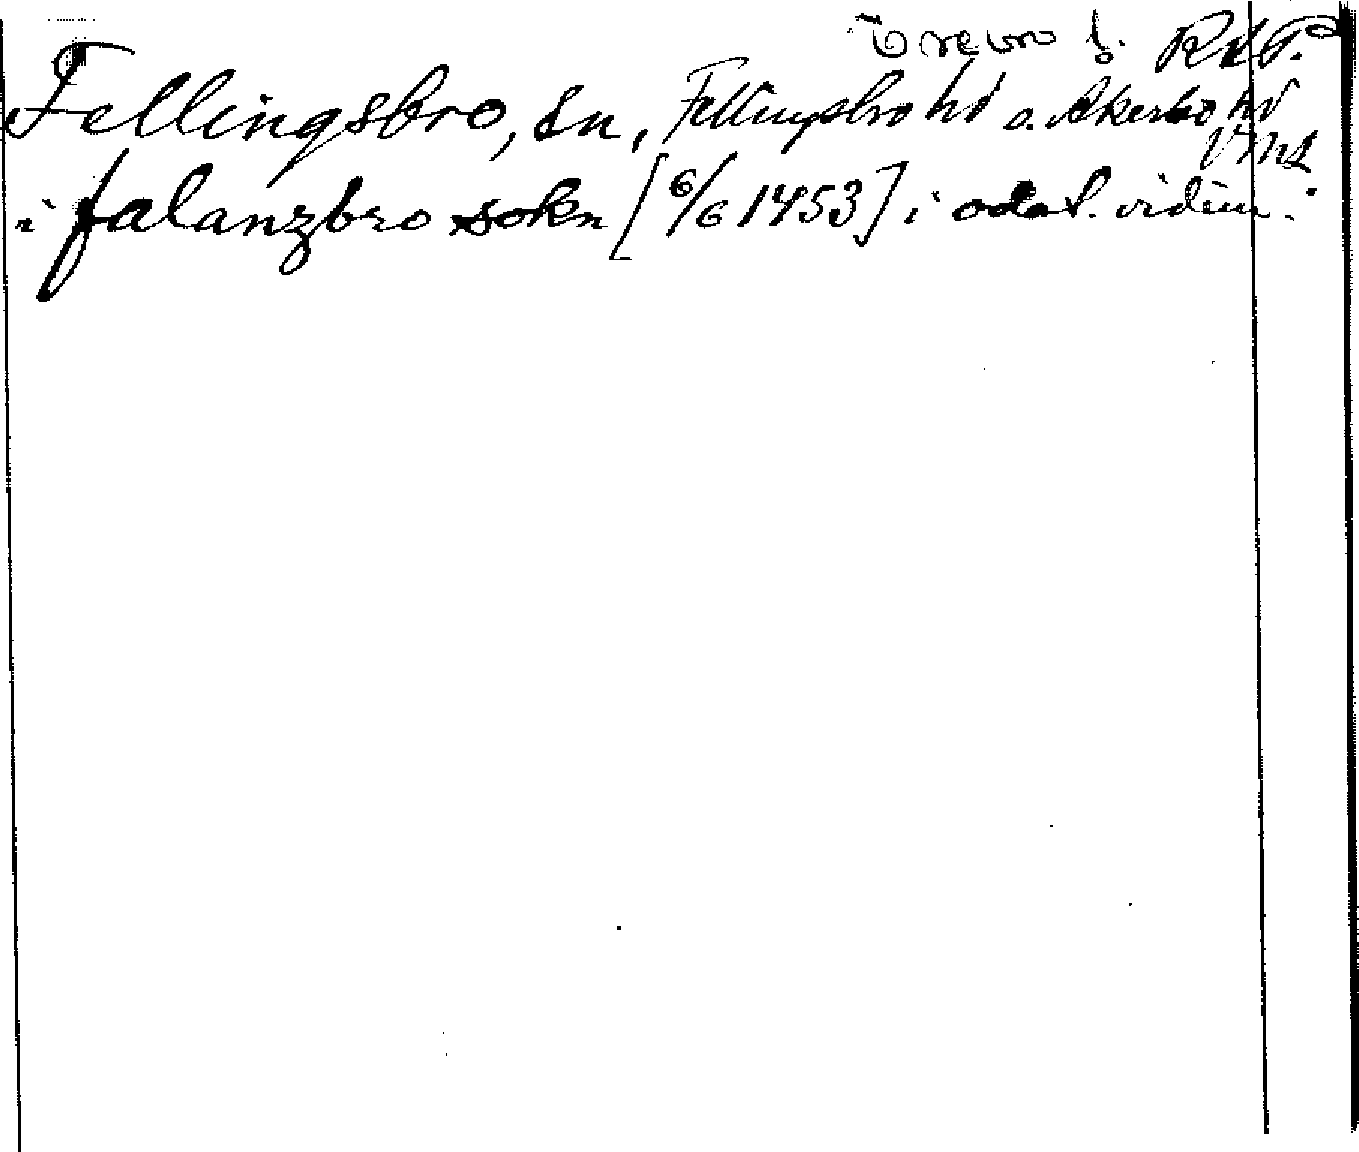 Örebro l. RAP.
Fellingsbro, sn, Fellingsbro hd o. Åkerbo hd
Vml.
i falanzbro sokn [6/6 1453] i odat. vidim.